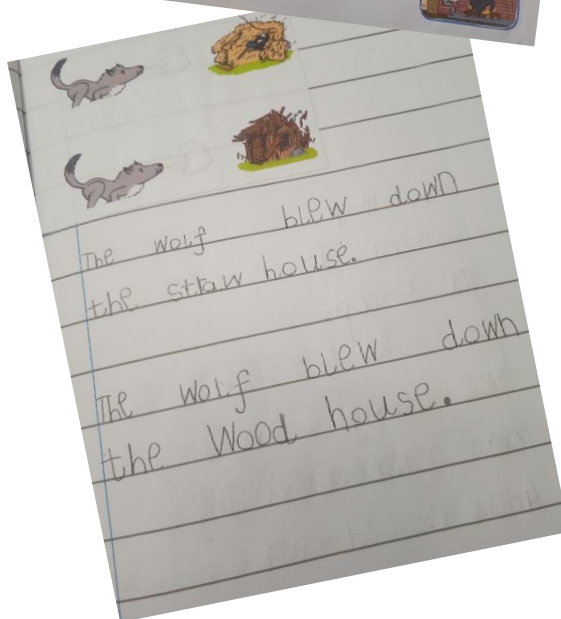 The wolf blew down
the straw house.
The wolf blew down
the wood house.